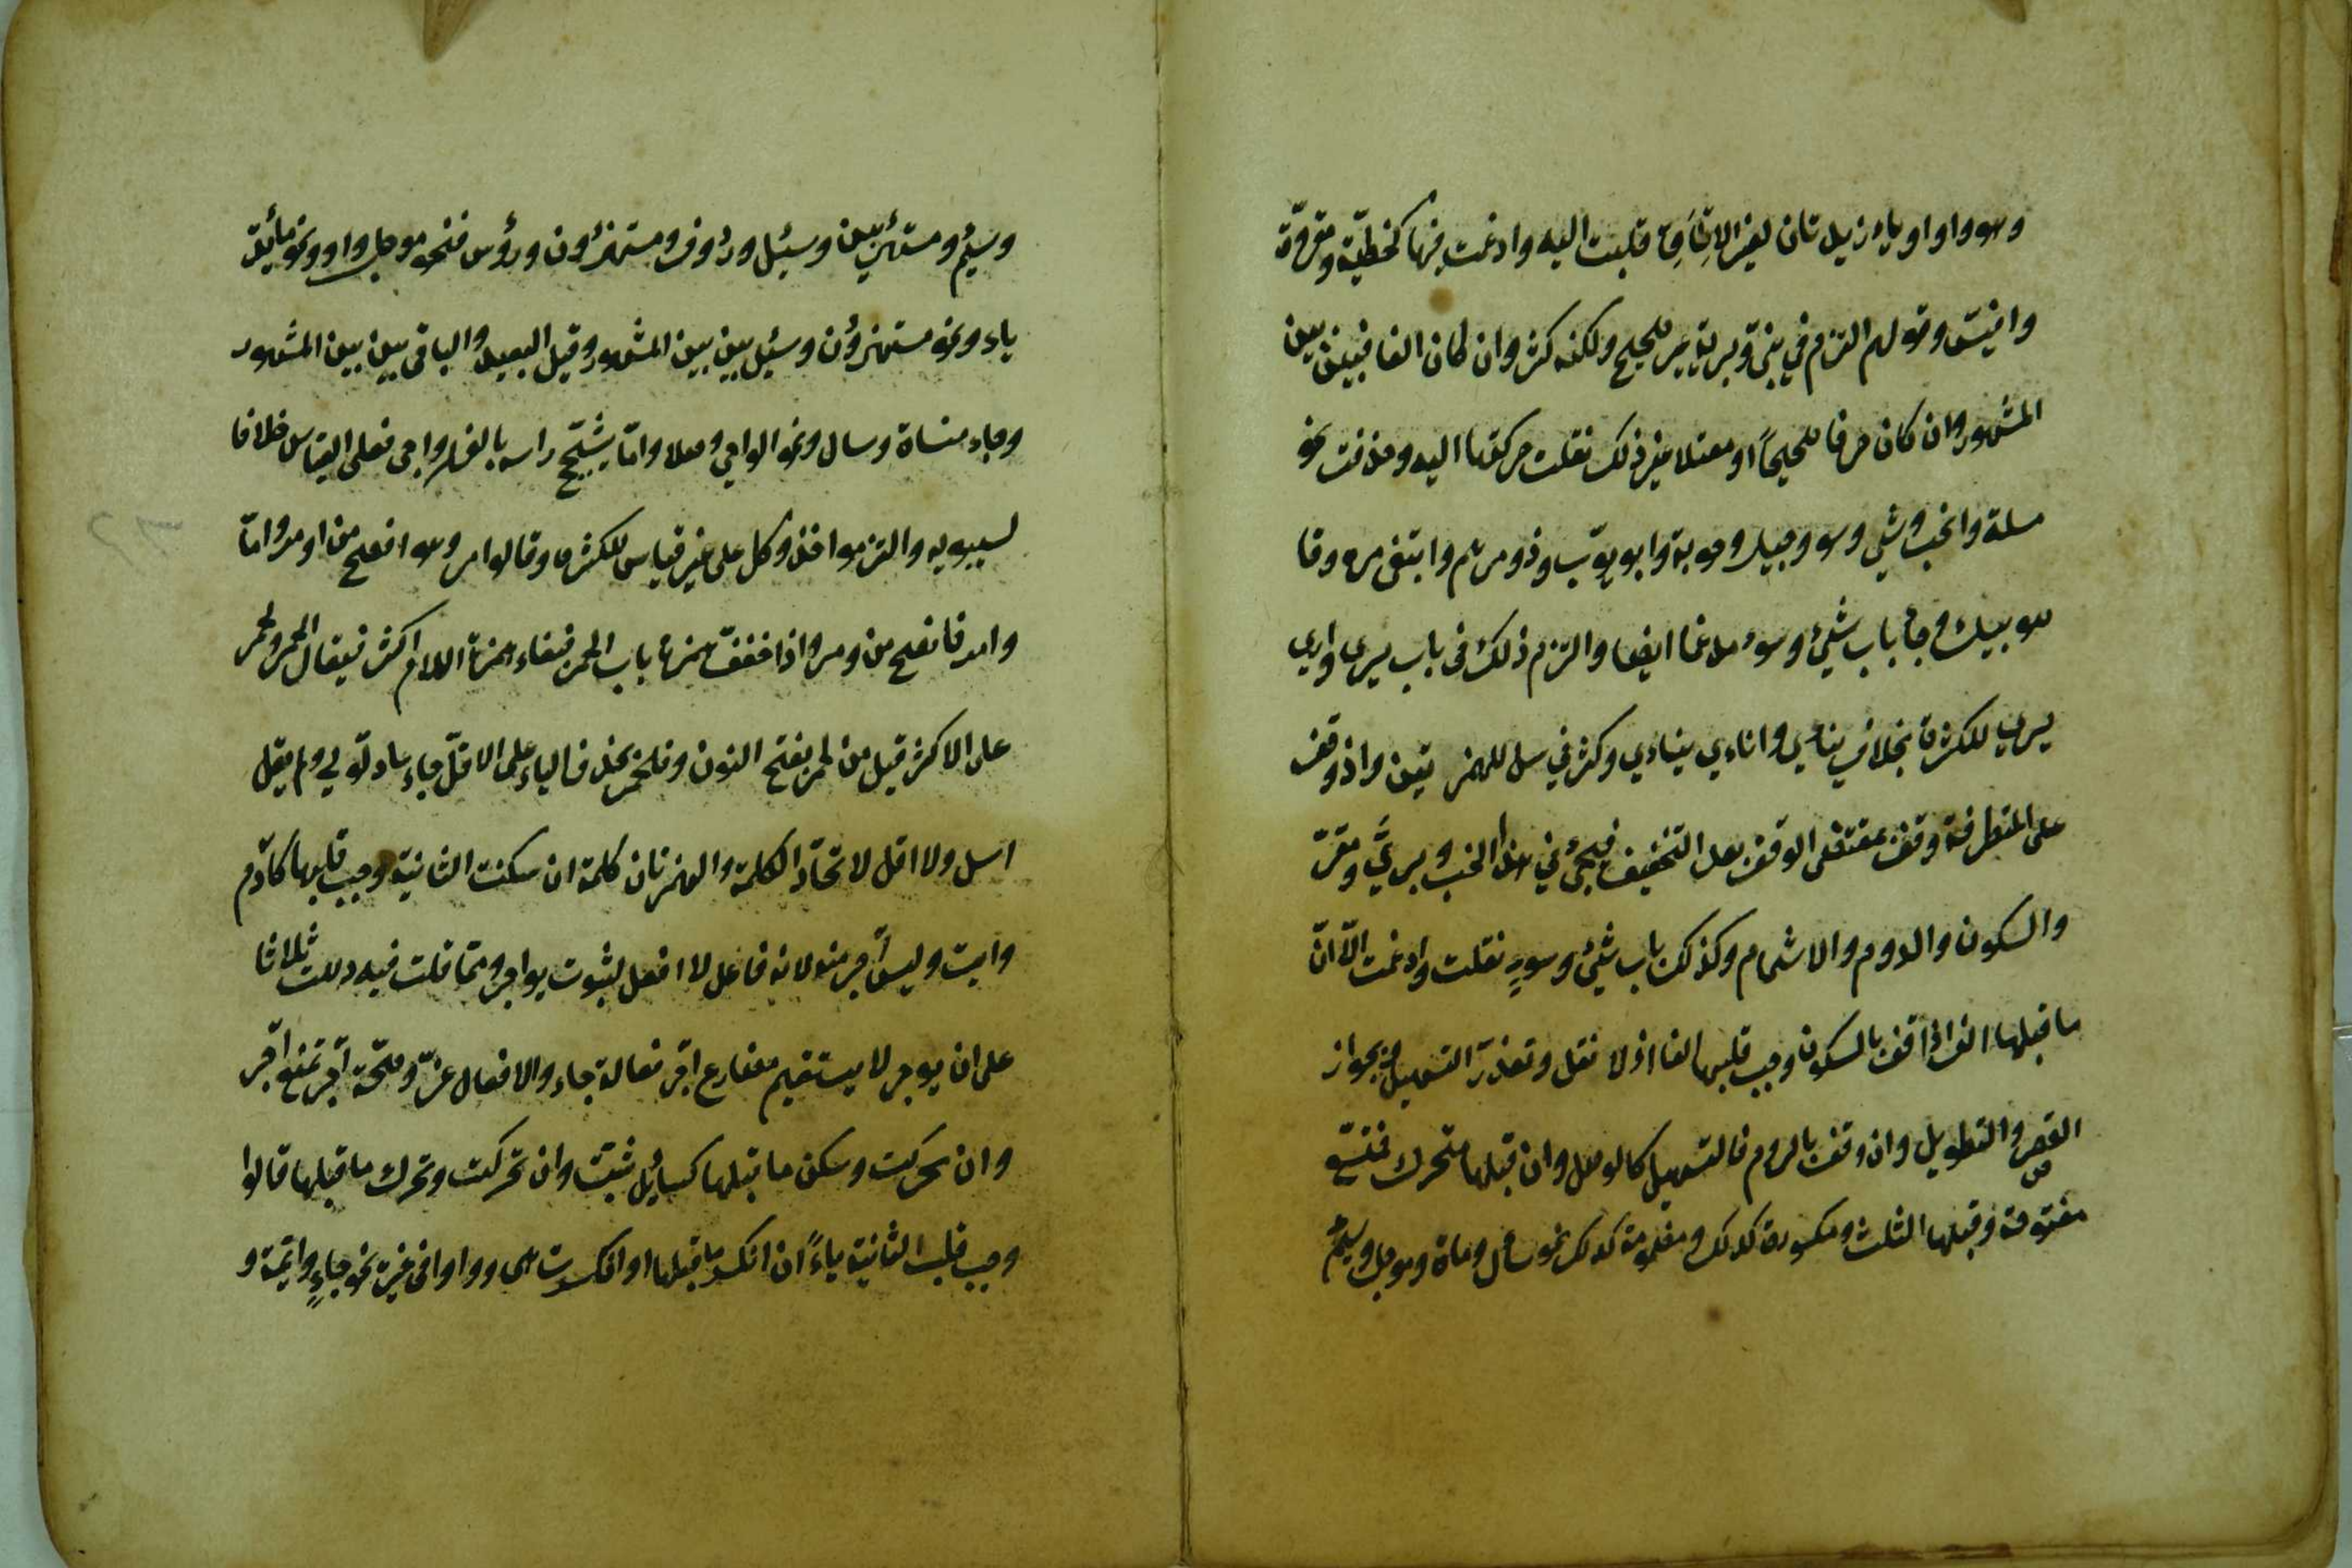 وهو واو او ياء زيدتان لغير الالحاق قلبت اليه وادغمت فيها كخطيّة ومقروّة
وافيّس وقولهم التزم في نبيّ وبريّة غير صحيح ولكنه كثر وان كان الفا فبين بين
المشهور وان كان حرفا صحيحاً او معتلا غير ذلك نقلت حركتها اليه وحذفت نحو
مسلة والخب وشي وسو وجيل وحوبة وابو يوّب وذو مرهم وابتغى مره وقا
ضو بيك وجاء باب شيئ وسوء مدغما ايضا والتزم ذلك في باب يرى واري
يري للكثرة بخلاف ينأي واناءي يناءي وكثر في سل للهمزتين واذا وقف
على المتطرفة وقف بمقتضى الوقف بعد التخفيف فيجئ في هذا الخب وبريّ ومقروّ
والسكون والروم والاشمام وكذلك باب شيئ وسوء نقلت وادغمت الّا انّ
ما قبلها الف اذا وقف بالسكون وجب قلبها الفا اذ لا نقل وتعذرّ التسهيل فيجوز
القصر والتطويل وان وقف بالروم فالتسهيل كالوصل وان قبلها متحرك فتسع
مفتوحة وقبلها الثلث ومكسورة كذلك ومضمومة كذلك نحو سال وماة وموجل وسئم
وسئم ومستهزئين وسئل ورؤف ومستهزؤن ورؤس فنحو موجل واو ونحو مائة
ياء ونحو مستهزؤن وسئل بين بين المشهور وقيل البعيد والباقي بين بين المشهور
وجاء منساة وسال ونحو الواجي وصلا وامّا يشجّج راسه بالفهر واجى فعلى القياس خلافا
لسيبويه والتزموا خذ وكل على غير قياس للكثرة وقالوا مر وهو افصح من اومر وامّا
وامر فافصح من ومر واذا خفف همزة باب الاحمر فبقاء همزة اللام اكثر فيقال الحمر ولحمر
على الاكثر قيل من لحمر بفتح النون وفلحمر بحذف الياء على الاقلّ جاء عاد لّولي ولم يقل
اسل ولا اقل لاتحاد الكلمة والهمزتان كلمة ان سكنت الثانية وجب قلبها كآدم
وايت وليس آجر منه لانه فاعل لا افعل لثبوت يواجر ومما قلت فيه دللت ثلاثا
على ان يوجر لا يستقيم مضارع آجر فعالة جاء والافعال عزّ وصحّة آجر تمنع آجر
وان تحركت وسكن ما قبلها كسائل ثبتت وان تحركت وتحرك ما قبلها قالوا
وجب قلب الثانية ياءً ان انكسر ما قبلها او انكسرت هي وواوا في غيره نحو جاءٍ وائمة و